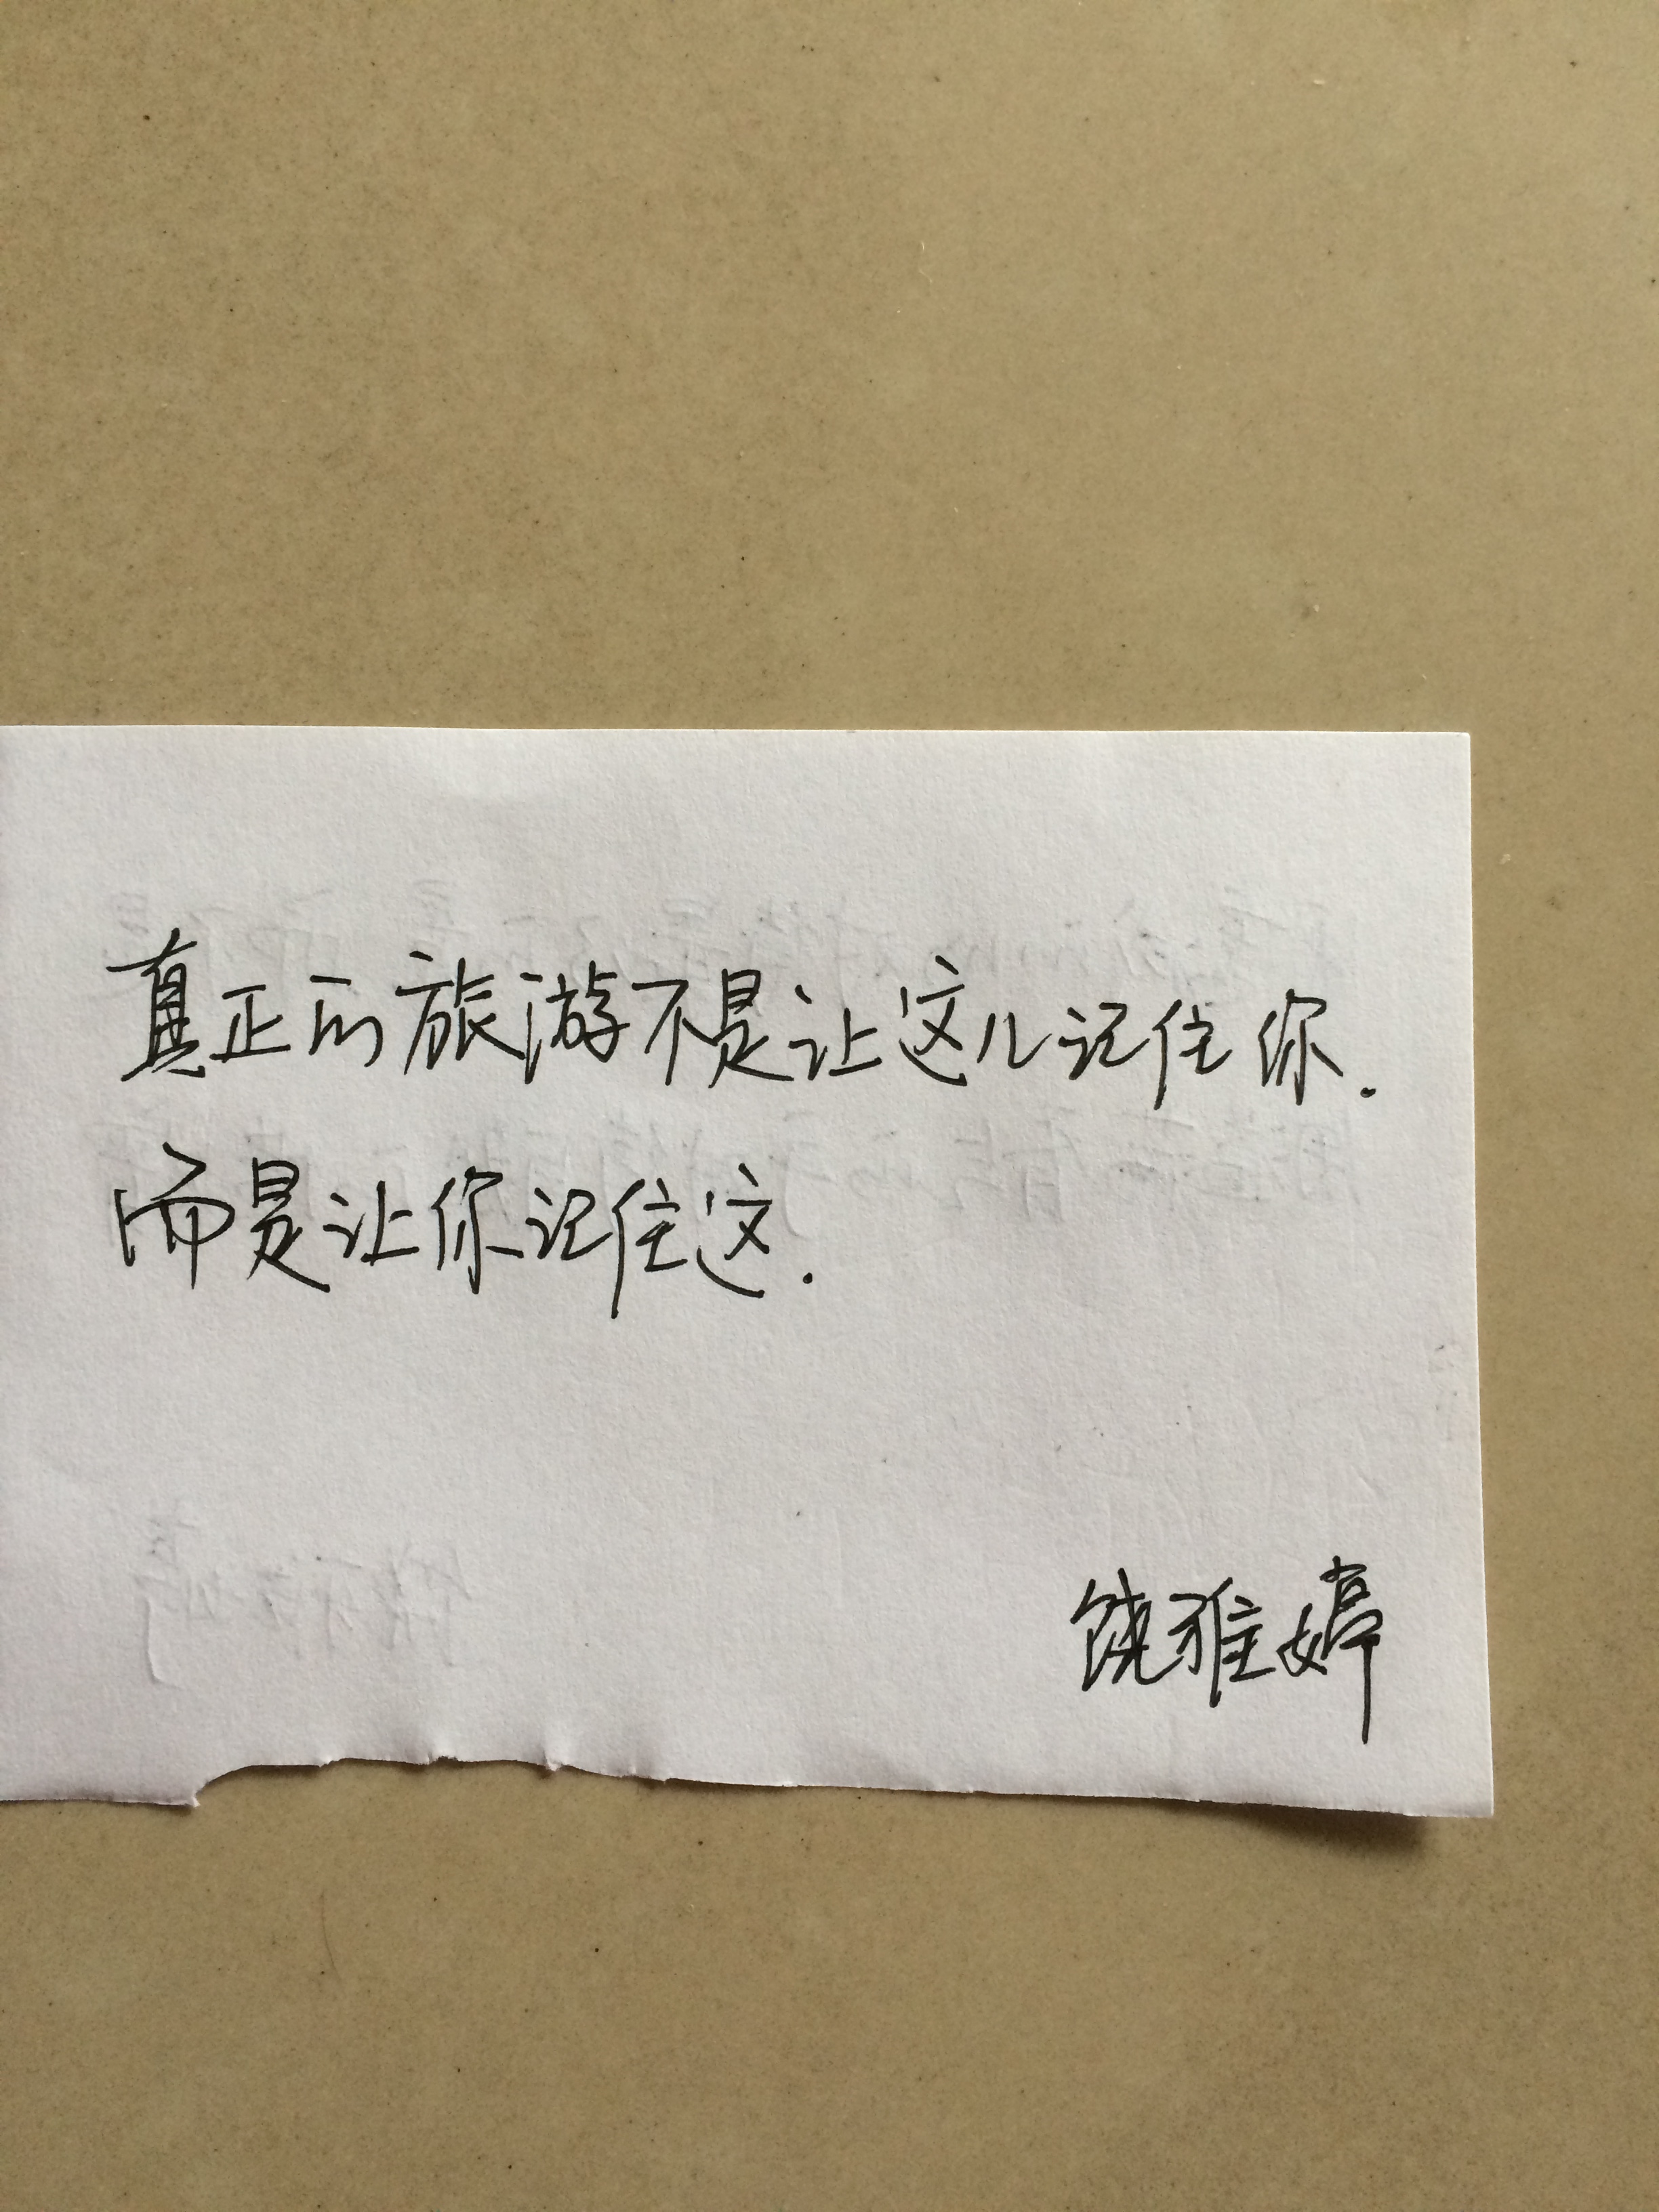 真正的旅游不是让这儿记住你.
而是让你记住这.
饶雅婷